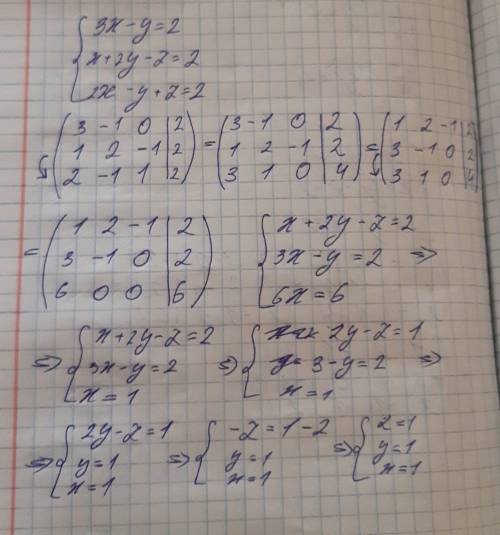 { 3x - y = 2
x + 2y - z = 2
2x - y + z = 2
( 3 -1 0 | 2
1 2 -1 | 2
2 -1 1 | 2 ) = ( 3 -1 0 | 2
1 2 -1 | 2
3 1 0 | 4 ) = ( 1 2 -1 | 2
3 -1 0 | 2
3 1 0 | 4 )
= ( 1 2 -1 | 2
3 -1 0 | 2
6 0 0 | 6 )
{ x + 2y - z = 2
3x - y = 2 ⇒
6x = 6
⇒ { x + 2y - z = 2
3x - y = 2
x = 1
⇒ { 2y - z = 1
3 - y = 2 ⇒
x = 1
⇒ { 2y - z = 1
y = 1
x = 1
⇒ { -z = 1 - 2
y = 1
x = 1
⇒ { z = 1
y = 1
x = 1